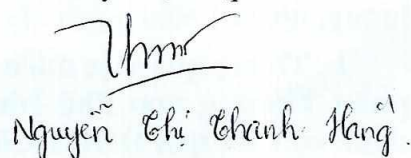 Nguyễn Thị Thanh Hằng